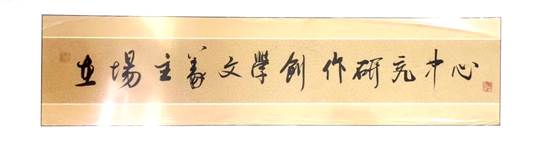 在場主義文學創作研究中心